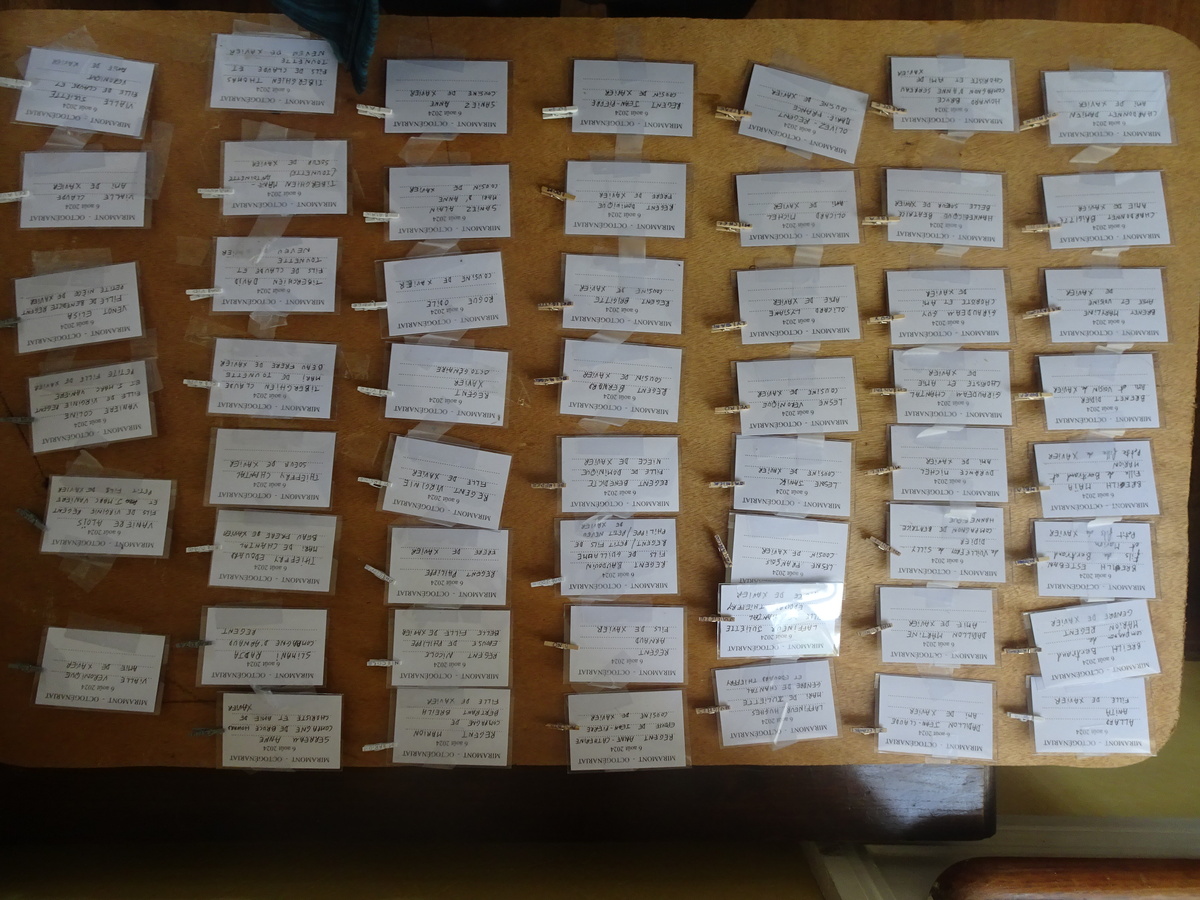 MIRAMONT - OCTOGÉNARIAT
6 août 2024
ALLARD
ANITA
FILLE DE XAVIER
MIRAMONT - OCTOGÉNARIAT
6 août 2024
BREILH Bertrand
compagnon de
MARION REGENT
GENDRE DE XAVIER
MIRAMONT - OCTOGÉNARIAT
6 août 2024
BREILH ESTEBAN
Fils de Bertrand
et Marion
Petit fils de XAVIER
MIRAMONT - OCTOGÉNARIAT
6 août 2024
BREILH MAÏA
Fille de Bertrand et
MARION
Petite fille de XAVIER
MIRAMONT - OCTOGÉNARIAT
6 août 2024
BRENET DIDIER
AMI et VOISIN de XAVIER
MIRAMONT - OCTOGÉNARIAT
6 août 2024
MARYLINE
AMIE ET
DE XAVIER
MIRAMONT - OCTOGÉNARIAT
6 août 2024
CHARDONNET BRIGITTE
AMIE DE XAVIER
MIRAMONT - OCTOGÉNARIAT
6 août 2024
CHARDONNET DAMIEN
AMI DE XAVIER
MIRAMONT - OCTOGÉNARIAT
6 août 2024
DADILLON JEAN-CLAUDE
AMI DE XAVIER
MIRAMONT - OCTOGÉNARIAT
6 août 2024
DADILLON MARTINE
AMIE DE XAVIER
MIRAMONT - OCTOGÉNARIAT
6 août 2024
de VUILLEFROY de SILLY
DIDIER
COMPAGNON DE BEATRICE
HANNEBICQUE
MIRAMONT - OCTOGÉNARIAT
6 août 2024
DURANCE MICHEL
AMI DE XAVIER
MIRAMONT - OCTOGÉNARIAT
6 août 2024
GIRAUDEAU CHANTAL
CHORISTE ET AMIE
DE XAVIER
MIRAMONT - OCTOGÉNARIAT
6 août 2024
GIRAUDEAU GUY
CHORISTE ET AMI
DE XAVIER
MIRAMONT - OCTOGÉNARIAT
6 août 2024
HANNEBICQUE BEATRICE
BELLE SOEUR DE XAVIER
MIRAMONT - OCTOGÉNARIAT
6 août 2024
HOWARD BRUCE
COMPAGNON D'ANNE SERREAU
CHORISTE ET AMI DE
XAVIER
MIRAMONT - OCTOGÉNARIAT
6 août 2024
LAFFINEUR HUGHES
MARI DE JULIETTE
GENDRE DE CHANTAL
ET EDOUARD THIEFFRY
MIRAMONT - OCTOGÉNARIAT
6 août 2024
LAFFINEUR JULIETTE
CHANTAL
THIEFFRY
DE XAVIER
LESNE FRANÇOIS
COUSIN DE XAVIER
MIRAMONT - OCTOGÉNARIAT
6 août 2024
LESNE JANIK
COUSINE DE XAVIER
MIRAMONT - OCTOGÉNARIAT
6 août 2024
LESNE VERONIQUE
COUSINE DE XAVIER
MIRAMONT - OCTOGÉNARIAT
6 août 2024
OLICARD LYSIANE
AMIE DE XAVIER
MIRAMONT - OCTOGÉNARIAT
6 août 2024
OLICARD MICHEL
AMI DE XAVIER
MIRAMONT - OCTOGÉNARIAT
6 août 2024
OLIVEZ-REGENT
MARIE-FRANCE
COUSINE DE XAVIER
MIRAMONT - OCTOGÉNARIAT
6 août 2024
REGENT ANNE-CATHERINE
EPOUSE DE JEAN-PIERRE
COUSINE DE XAVIER
MIRAMONT - OCTOGÉNARIAT
6 août 2024
REGENT
ARNAUD
FILS DE XAVIER
MIRAMONT - OCTOGÉNARIAT
6 août 2024
REGENT BAUDOUIN
FILS DE GUILLAUME
REGENT/PETIT FILS DE
PHILIPPE/PETIT NEVEU
DE XAVIER
MIRAMONT - OCTOGÉNARIAT
6 août 2024
REGENT BENEDICTE
FILLE DE DOMINIQUE
NIECE DE XAVIER
MIRAMONT - OCTOGÉNARIAT
6 août 2024
REGENT BERNARD
COUSIN DE XAVIER
MIRAMONT - OCTOGÉNARIAT
6 août 2024
REGENT BRIGITTE
COUSINE DE XAVIER
MIRAMONT - OCTOGÉNARIAT
6 août 2024
REGENT DOMINIQUE
FRERE DE XAVIER
MIRAMONT - OCTOGÉNARIAT
6 août 2024
REGENT JEAN-PIERRE
COUSIN DE XAVIER
MIRAMONT - OCTOGÉNARIAT
6 août 2024
REGENT MARION
COMPAGNE DE
BERTRANT BREILH
FILLE DE XAVIER
MIRAMONT - OCTOGÉNARIAT
6 août 2024
REGENT NICOLE
EPOUSE DE PHILIPPE
BELLE FILLE DE XAVIER
MIRAMONT - OCTOGÉNARIAT
6 août 2024
REGENT PHILIPPE
FRERE DE XAVIER
MIRAMONT - OCTOGÉNARIAT
6 août 2024
REGENT VIRGINIE
FILLE DE XAVIER
MIRAMONT - OCTOGÉNARIAT
6 août 2024
REGENT
XAVIER
OCTOGÉNAIRE
MIRAMONT - OCTOGÉNARIAT
6 août 2024
ROGUE ODILE
COUSINE DE XAVIER
MIRAMONT - OCTOGÉNARIAT
6 août 2024
SANIEZ ALAIN
MARI D'ANNE
COUSIN DE XAVIER
MIRAMONT - OCTOGÉNARIAT
6 août 2024
SANIEZ ANNE
COUSINE DE XAVIER
MIRAMONT - OCTOGÉNARIAT
6 août 2024
SERREAU ANNE
COMPAGNE DE BRUCE HOWARD
CHORISTE ET AMIE DE
XAVIER
MIRAMONT - OCTOGÉNARIAT
6 août 2024
SLIMANI RADJA
COMPAGNE D'ARNAUD
REGENT
MIRAMONT - OCTOGÉNARIAT
6 août 2024
THIEFFRY EDOUARD
MARI DE CHANTAL
BEAU FRERE DE XAVIER
MIRAMONT - OCTOGÉNARIAT
6 août 2024
THIEFFRY CHANTAL
SOEUR DE XAVIER
MIRAMONT - OCTOGÉNARIAT
6 août 2024
TIBERGHIEN CLAUDE
MARI DE TOUNETTE
BEAU FRERE DE XAVIER
MIRAMONT - OCTOGÉNARIAT
6 août 2024
TIBERGHIEN DAVID
FILS DE CLAUDE ET
TOUNETTE
NEVEU
MIRAMONT - OCTOGÉNARIAT
6 août 2024
TIBERGHIEN MARIE-
(TOUNETTE) ANTOINETTE
SOEUR DE XAVIER
MIRAMONT - OCTOGÉNARIAT
6 août 2024
TIBERGHIEN THOMAS
FILS DE CLAUDE ET
TOUNETTE
NEVEU DE XAVIER
MIRAMONT - OCTOGÉNARIAT
6 août 2024
VIALLE VERONIQUE
AMIE DE XAVIER
MIRAMONT - OCTOGÉNARIAT
6 août 2024
VANIERE ALOÏS
FILS DE VIRGINIE REGENT
ET J MARC VANIERE
PETIT FILS DE XAVIER
MIRAMONT - OCTOGÉNARIAT
6 août 2024
VANIERE COLINE
FILLE DE VIRGINIE REGENT
ET J MARC VANIERE
PETITE FILLE DE XAVIER
MIRAMONT - OCTOGÉNARIAT
6 août 2024
VENOT ELISA
FILLE DE BENEDICTE REGENT
PETITE NIÈCE DE XAVIER
MIRAMONT - OCTOGÉNARIAT
6 août 2024
VIALLE CLAUDE
AMI DE XAVIER
MIRAMONT - OCTOGÉNARIAT
6 août 2024
VIALLE JULIETTE
FILLE DE CLAUDE ET
VERONIQUE
AMIE DE XAVIER